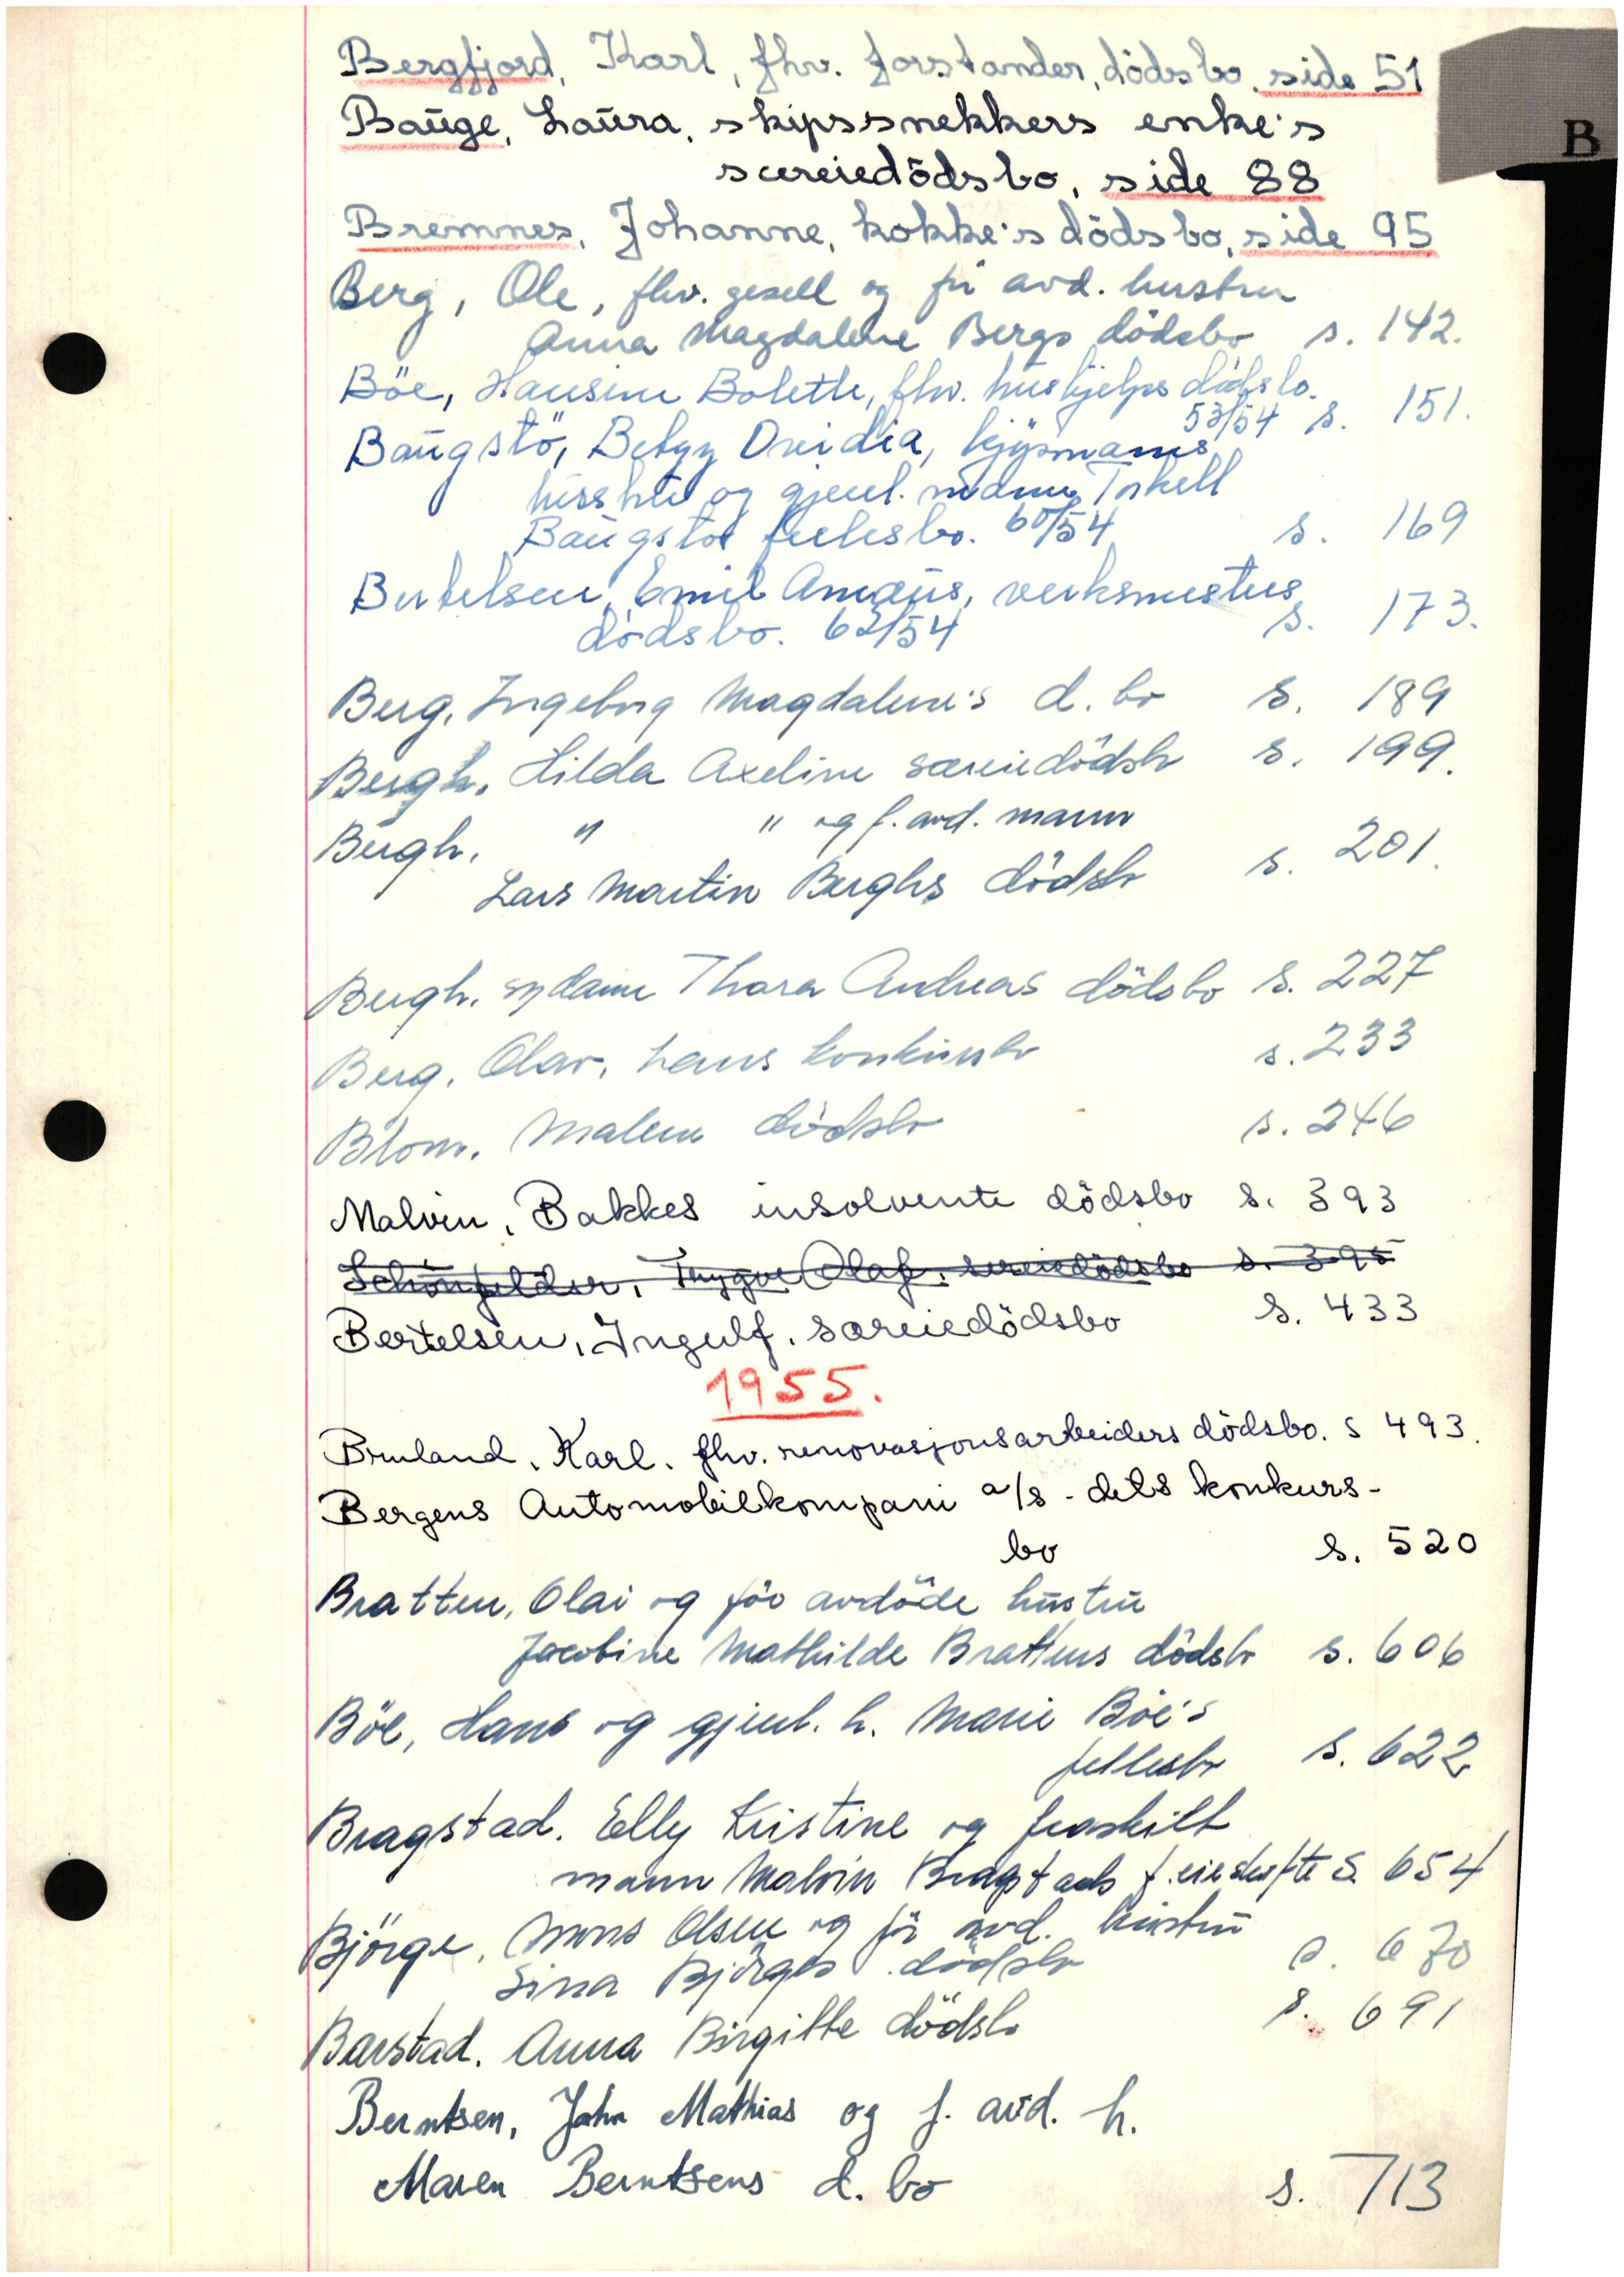 Bergfjord, Karl, fhv. forstander, dödsbo, side 51
B
Bauge, Laura, skipssnekkers enke's
særeiedödsbo, side 88
Bremnes, Johanne, kokke's dödsbo, side 95
Berg, Ole, fhv. gesell ogför avd. hustru
Anna Magdalene Bergs dödsbo s. 142.
Böe, Hansine Bolette, fhv. hushjelps dödsbo.
53/54 s. 151.
Baugstö, Betzy Ovidia,
hustru og gjenl. mann Torkell
Baugstös fellesbo. 60/54 s. 169
Bertelsen, Emil Amæus, verksmesters
dödsbo. 62/54 s. 173.
Berg, Ingeborg Magdalene's d. bo s. 189
Bergh, Hilda Axeline særeiedödsbo s. 199.
Bergh, " " og f. avd. mann
Lars Martin Berghs dödsbo s. 201.
Bergh, sydame Thora Andreas dödsbo s. 227
Berg, Olav, hans konkursbo s. 233
Blom, Malene dödsbo s. 246
Malvin, Bakkes insolvente dödsbo s. 393
Schönfelder, Trygve Olaf, særeiedödsbo s. 395
Bertelsen, Ingulf, særeiedödsbo s. 433
1955.
Bruland, Karl, fhv. renovasjonsarbeiders dödsbo. s 493.
Bergens Automobilkompani a/s - dets konkurs-
bo s. 520
Bratten, Olai og för avdöde hustru
Jacobine Mathilde Brattens dödsbo s. 606
Böe, Hans og gjenl. h. Marie Böe's
fellesbo s. 622
Bragstad, Elly Kristine og fraskilt
mann Malvin Bragstads f. eieskifte s. 654
Björge, Mons Olsen og för avd. hustru
Sina Björges dödsbo s. 670
Barstad, Anna Birgitte dödsbo s. 691
Berntsen, John Mathias og f. avd. h.
Maren Berntsens d. bo s. 713